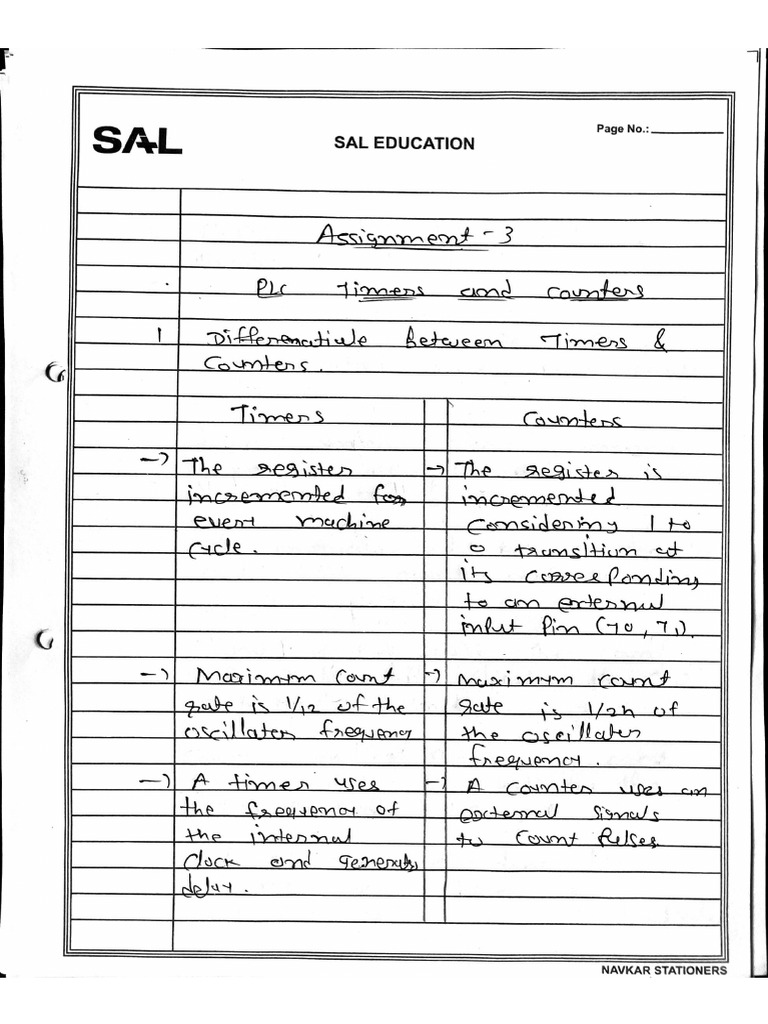 SAL
SAL EDUCATION
Page No.:
Assignment - 3
PLC Timers and Counters
1 Differenatiule Between Timers &
Counters.
Timers
Counters
→ The register
incremented for
every machine
cycle.
→ The register is
incremented
considering 1 to
0 transition at
its corresponding
to an external
input pin (T0, T1).
→ Maximum count
rate is 1/12 of the
oscillator frequency
→ Maximum count
rate is 1/24 of
the oscillator
frequency.
→ A timer uses
the frequency of
the internal
clock and generates
delay.
→ A counter uses an
external signals
to count pulses.
NAVKAR STATIONERS